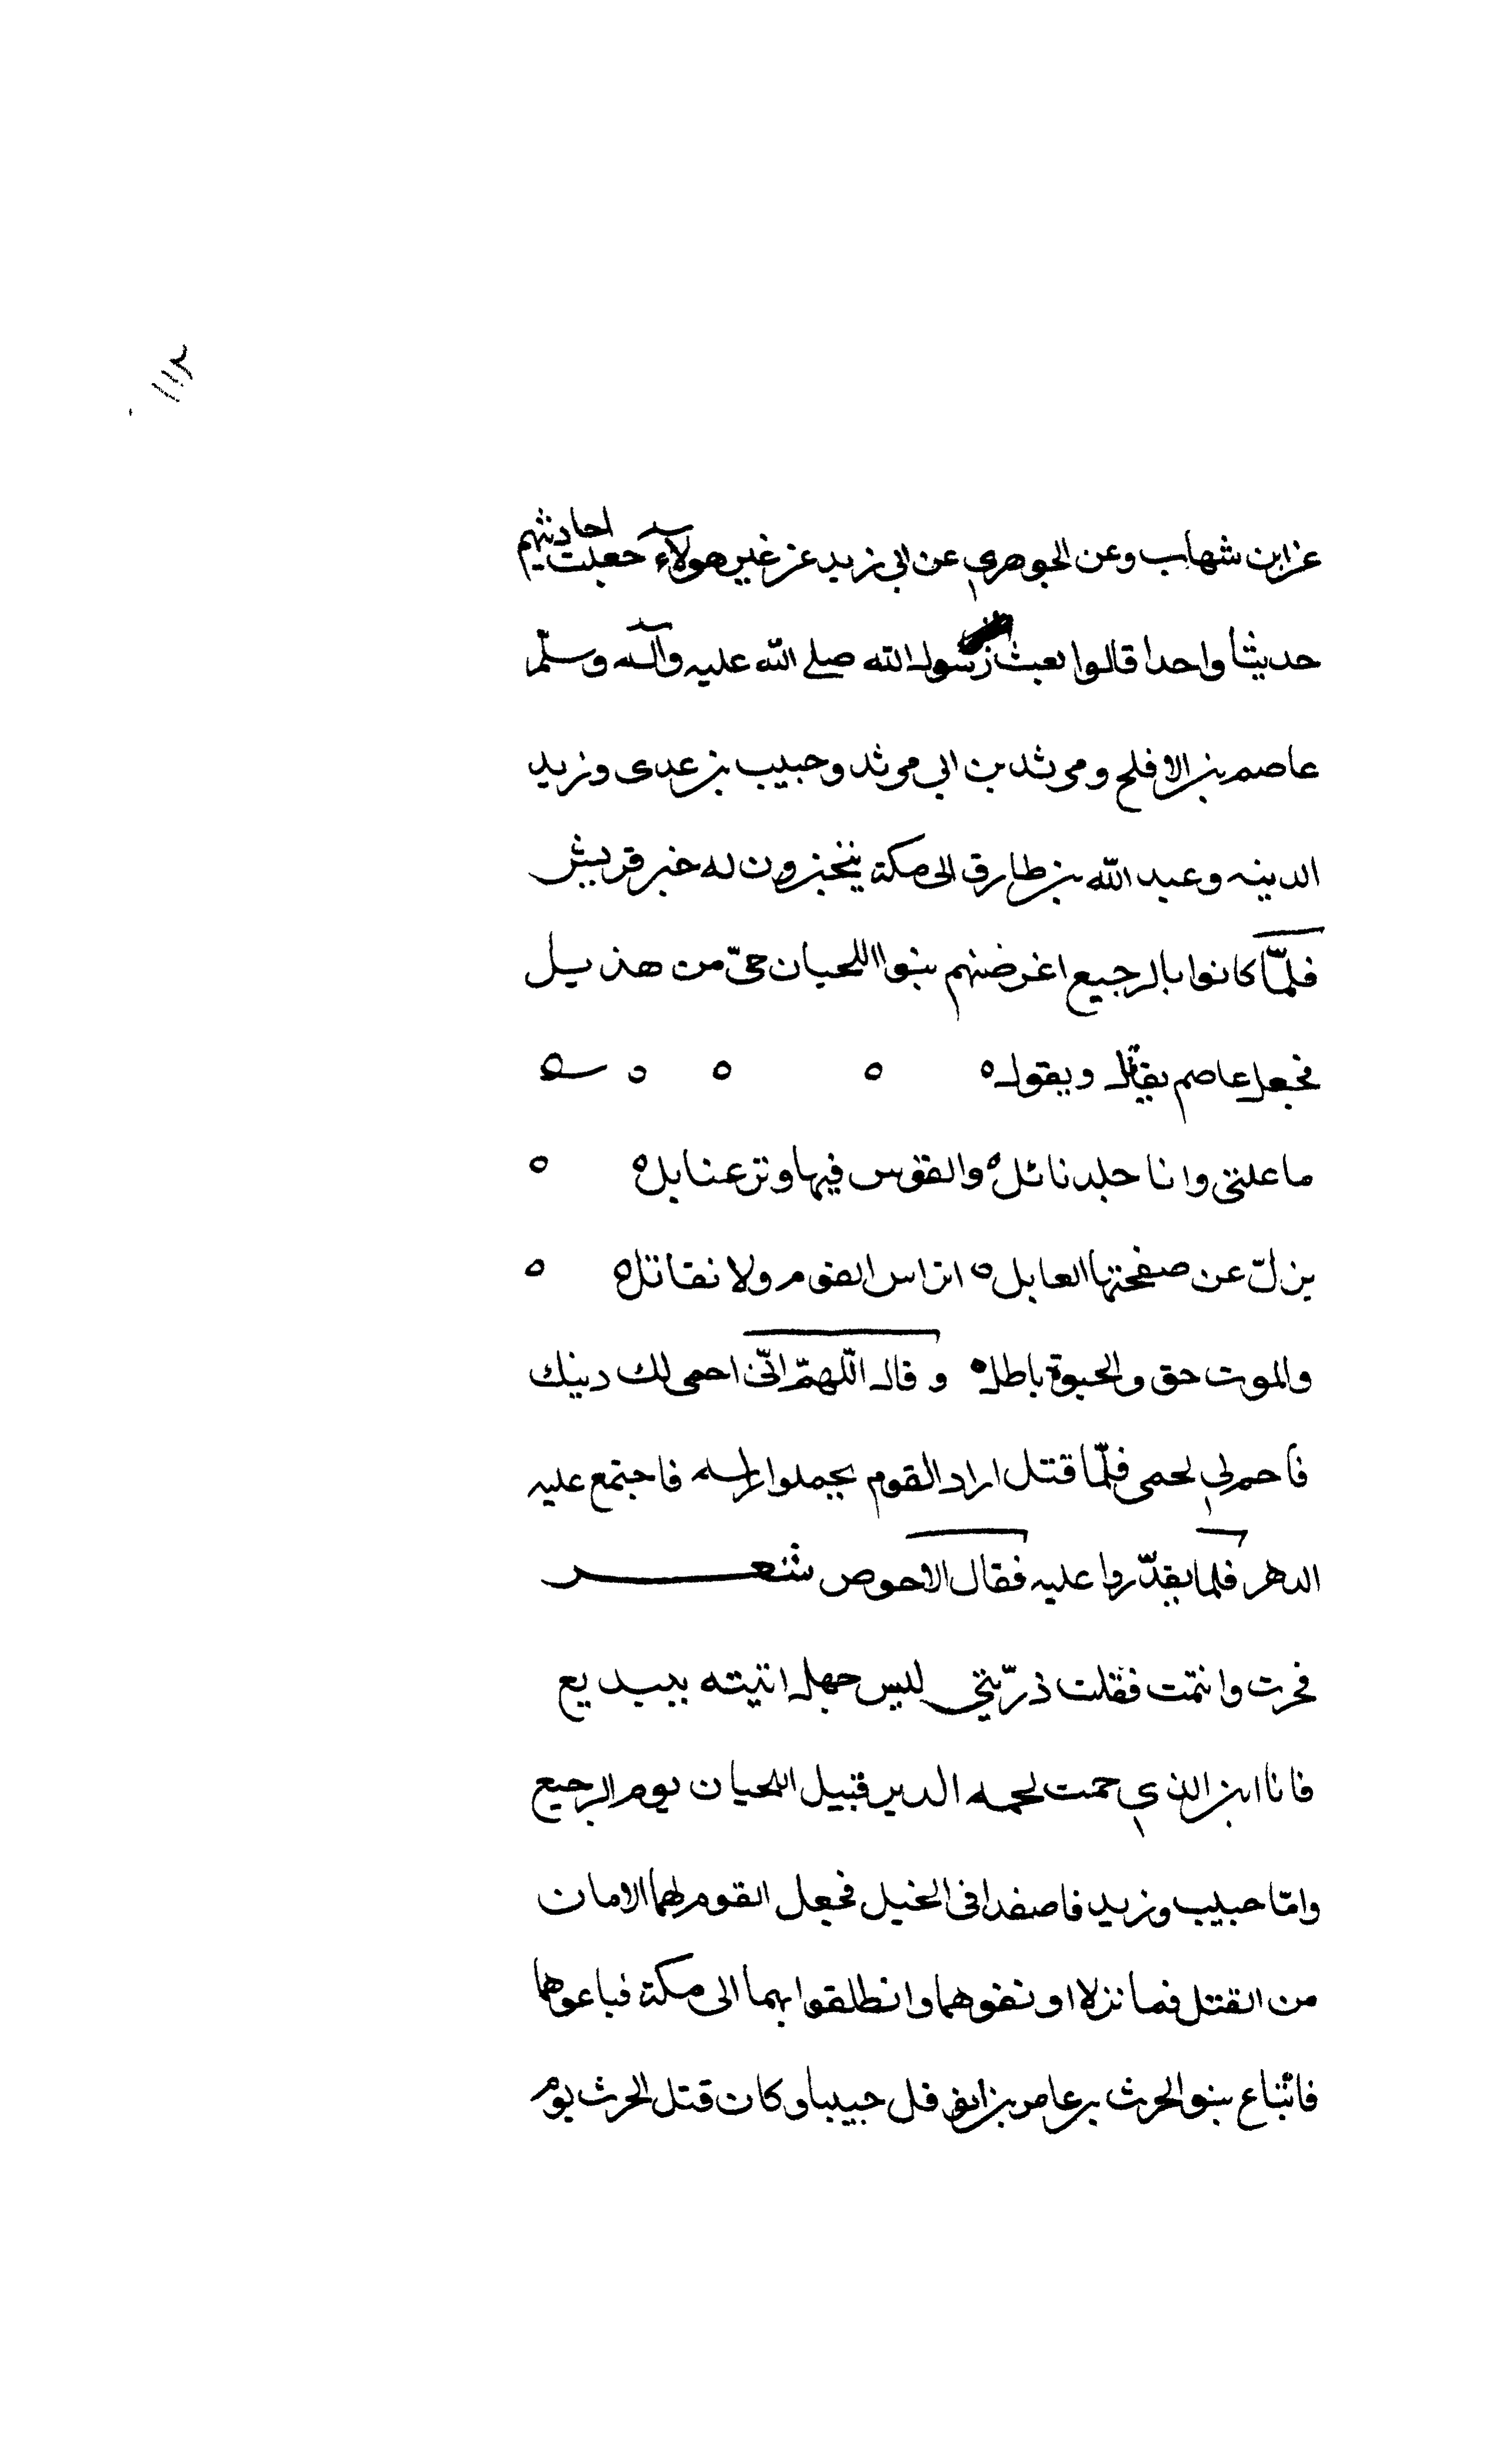 ١١٢
عن ابن شهاب وعن الجوهري عن ابي زيد عن غير هولآء جعلت احاديثهم
حديثا واحدا قالوا بعث رسول الله صلى الله عليه وآله وسلّم
عاصم بن الافلح ومرثد بن ابي مرثد وخبيب بن عدى وزيد
الدينه وعبد الله بن طارق الى مكة يتخبرون له خبر قريش
فلمّا كانوا بالرجيع اغرضنهم بنوا اللحيان حىّ من هذيل
فجعل عاصم يقاتل ويقول ه ه ه ه
ما علتى وانا جلد نائل ه والقوس فيها وتر عنابل ه ه
يزلّ عن صفحتها العابل ه اتراس القوم ولا نقاتل ه ه
والموت حق والحيوة باطل ه وقال اللهمّ انّى احمى لك دينك
فاحم لي لحمى فلمّا قتل اراد القوم يحملوا راسه فاجتمع عليه
الدهر فلما يقدّروا عليه فقال الاحوص شعر
فخرت وانتمت فقلت ذرّيتى ليس جهل اتيته ببديع
فانا ابن الذي حمت لحمه الدير قتيل اللحيان يوم الرجيع
وامّا خبيب وزيد فاصفدا فى الخيل فجعل القوم لهما الامان
من القتل فما نزلا اونفوهما وانطلقوا بهما الى مكة فباعوهما
فاتباع بنو الحرث بن عامر بن نوفل خبيبا وكان قتل الحرث يوم